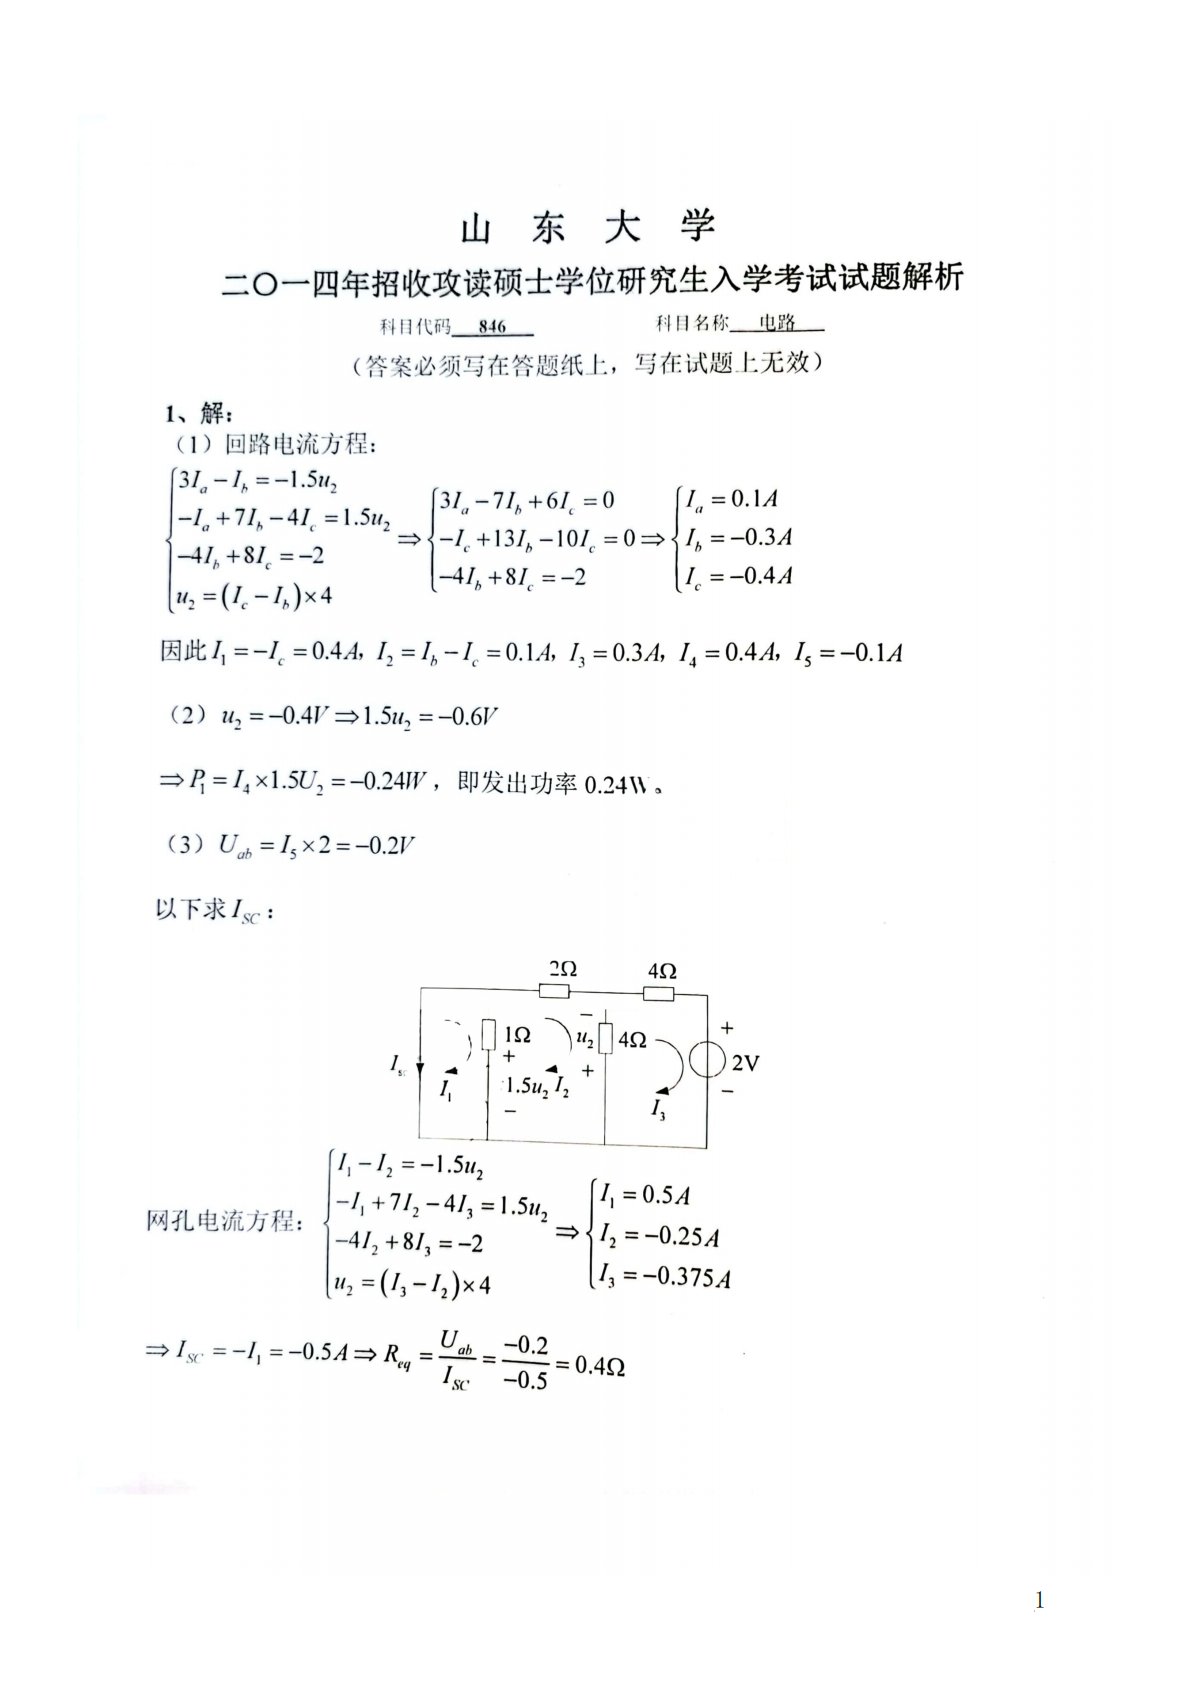 山 东 大 学
二〇一四年招收攻读硕士学位研究生入学考试试题解析
科目代码 846 科目名称 电路
（答案必须写在答题纸上，写在试题上无效）
1、解：
（1）回路电流方程：
{3I_a − I_b = −1.5u_2
−I_a + 7I_b − 4I_c = 1.5u_2
−4I_b + 8I_c = −2
u_2 = (I_c − I_b)×4
⇒ {3I_a − 7I_b + 6I_c = 0
−I_c + 13I_b − 10I_c = 0
−4I_b + 8I_c = −2
⇒ {I_a = 0.1A
I_b = −0.3A
I_c = −0.4A
因此 I_1 = −I_c = 0.4A, I_2 = I_b − I_c = 0.1A, I_3 = 0.3A, I_4 = 0.4A, I_5 = −0.1A
（2）u_2 = −0.4V ⇒ 1.5u_2 = −0.6V
⇒ P_1 = I_4 × 1.5U_2 = −0.24W，即发出功率 0.24W。
（3）U_ab = I_5 × 2 = −0.2V
以下求 I_SC：
2Ω 4Ω
1Ω − u_2 + 4Ω
+ 1.5u_2 −
+ 2V −
I_sc I_1 I_2 I_3
网孔电流方程：
{I_1 − I_2 = −1.5u_2
−I_1 + 7I_2 − 4I_3 = 1.5u_2
−4I_2 + 8I_3 = −2
u_2 = (I_3 − I_2)×4
⇒ {I_1 = 0.5A
I_2 = −0.25A
I_3 = −0.375A
⇒ I_SC = −I_1 = −0.5A ⇒ R_eq = U_ab / I_SC = −0.2 / −0.5 = 0.4Ω
1